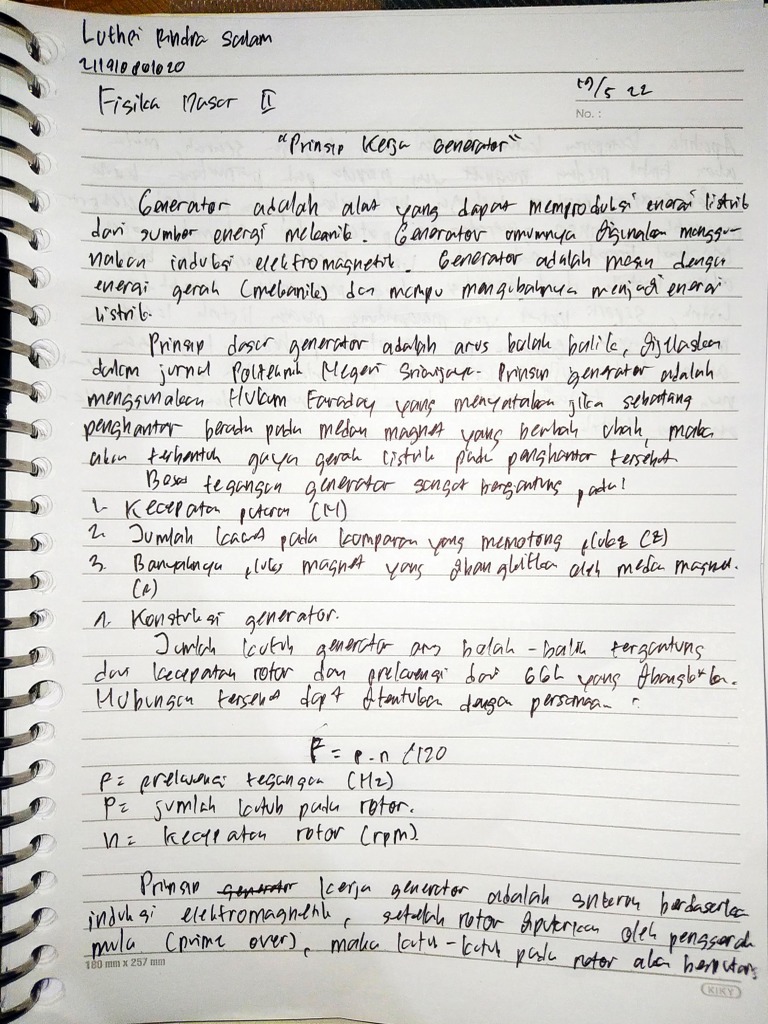 Luthfi Rindra Salam
Fisika Dasar II
/5 22
No. :
"Prinsip Kerja Generator"
Generator adalah alat yang dapat memproduksi energi listrik
dari sumber energi mekanik. Generator umumnya digunakan menggu-
nakan induksi elektromagnetik. Generator adalah mesin dengan
energi gerak (mekanik) dan mampu mengubahnya menjadi energi
listrik.
Prinsip dasar generator adalah arus bolak balik, dijelaskan
dalam jurnal Politeknik Negeri Sriwijaya. Prinsip generator adalah
menggunakan Hukum Faraday yang menyatakan jika sebatang
penghantar berada pada medan magnet yang berubah ubah, maka
akan terbentuk gaya gerak listrik pada penghantar tersebut
Besar tegangan generator sangat bergantung pada :
1. Kecepatan putaran (N)
2. Jumlah kawat pada kumparan yang memotong fluks (Z)
3. Banyaknya fluks magnet yang dibangkitkan oleh medan magnet.
4. Konstruksi generator.
Jumlah kutub generator arus bolak-balik tergantung
dari kecepatan rotor dan frekuensi dari GGL yang dibangkitkan.
Hubungan tersebut dapat ditentukan dengan persamaan :
F = p.n /120
F = frekuensi tegangan (Hz)
P = jumlah kutub pada rotor.
n = kecepatan rotor (rpm).
Prinsip generator kerja generator adalah sinkron berdasarkan
induksi elektromagnetik, setelah rotor diputarkan oleh penggerak
mula (prime over), maka kutub-kutub pada rotor akan berputar,
180 mm x 257 mm
KIKY